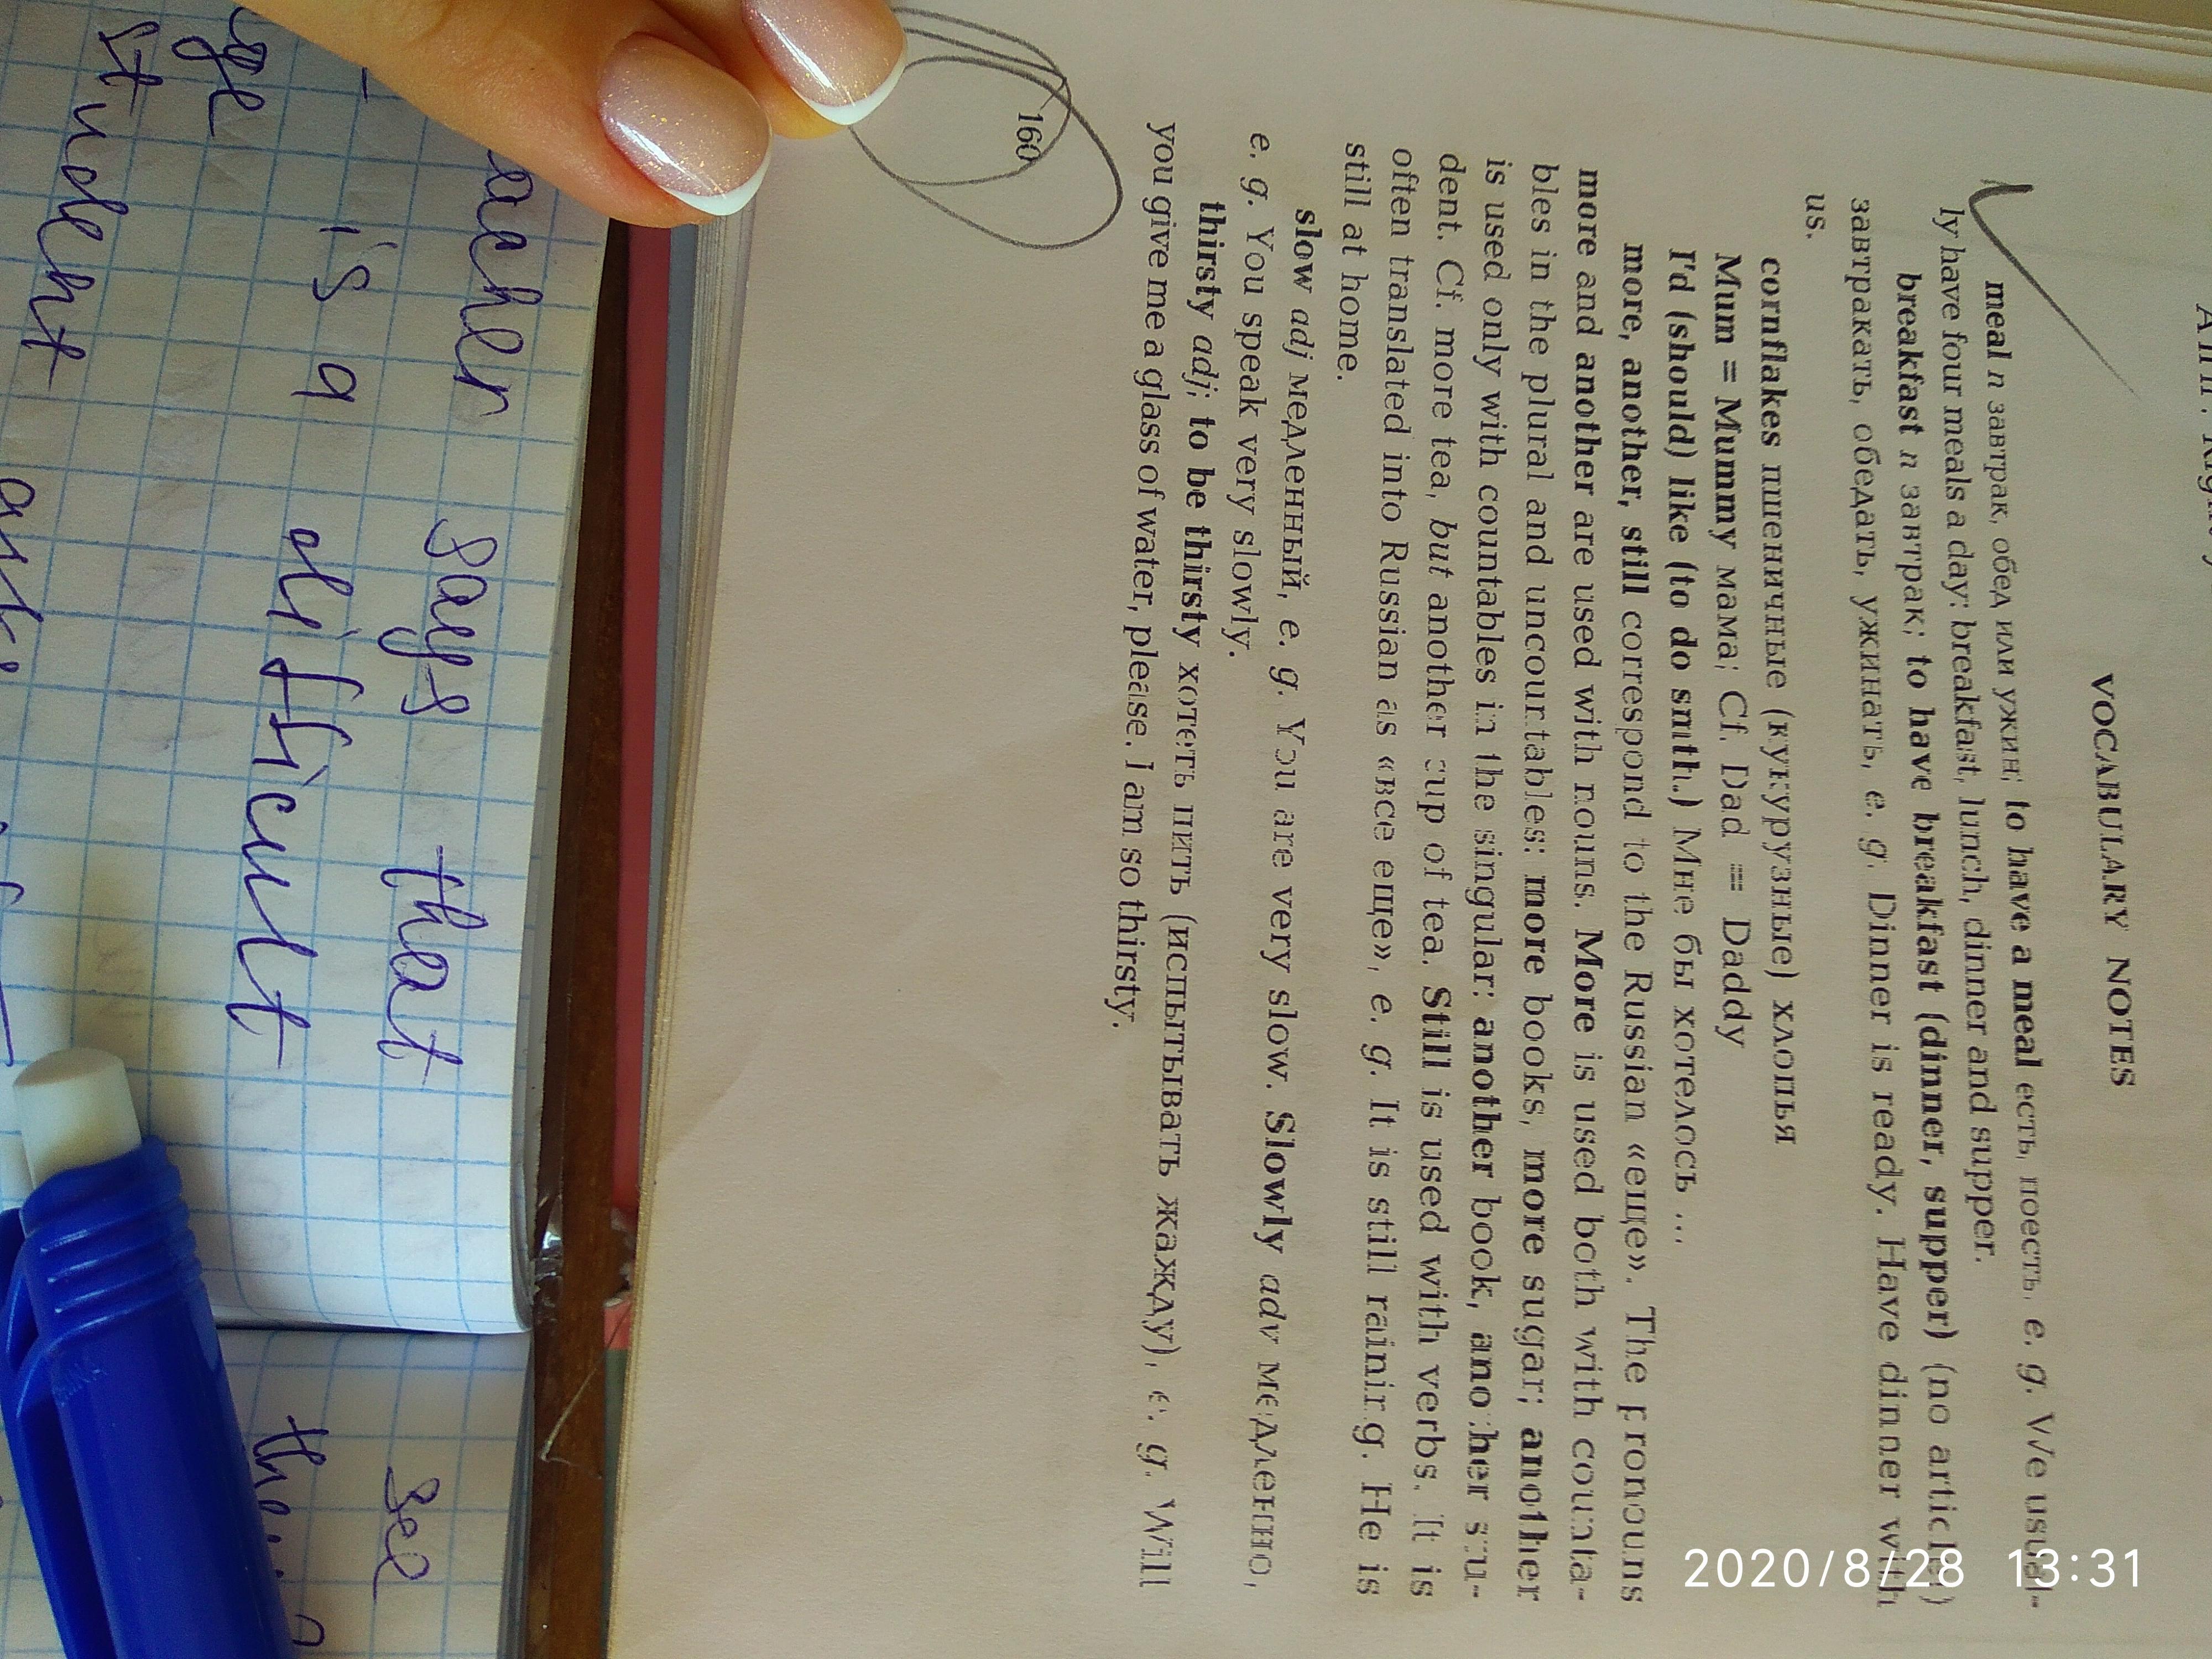 VOCABULARY NOTES
meal n завтрак, обед или ужин; to have a meal есть, поесть, e. g. We usual-
ly have four meals a day: breakfast, lunch, dinner and supper.
breakfast n завтрак; to have breakfast (dinner, supper) (no article)
завтракать, обедать, ужинать, e. g. Dinner is ready. Have dinner with
us.
cornflakes пшеничные (кукурузные) хлопья
Mum = Mummy мама; Cf. Dad = Daddy
I'd (should) like (to do smth.) Мне бы хотелось ...
more, another, still correspond to the Russian «еще». The pronouns
more and another are used with nouns. More is used both with counta-
bles in the plural and uncountables: more books, more sugar; another
is used only with countables in the singular: another book, another stu-
dent. Cf. more tea, but another cup of tea. Still is used with verbs. It is
often translated into Russian as «все еще», e. g. It is still raining. He is
still at home.
slow adj медленный, e. g. You are very slow. Slowly adv медленно,
e. g. You speak very slowly.
thirsty adj; to be thirsty хотеть пить (испытывать жажду), e. g. Will
you give me a glass of water, please. I am so thirsty.
160
says that
is a difficult
student
see
2020/8/28 13:31